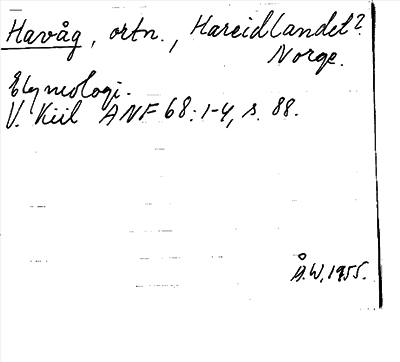 Havåg, ortn., Hareidlandet?
Norge.
Etymologi.
V. Kiil ANF 68:1-4, s. 88.
Å.W. 1955.